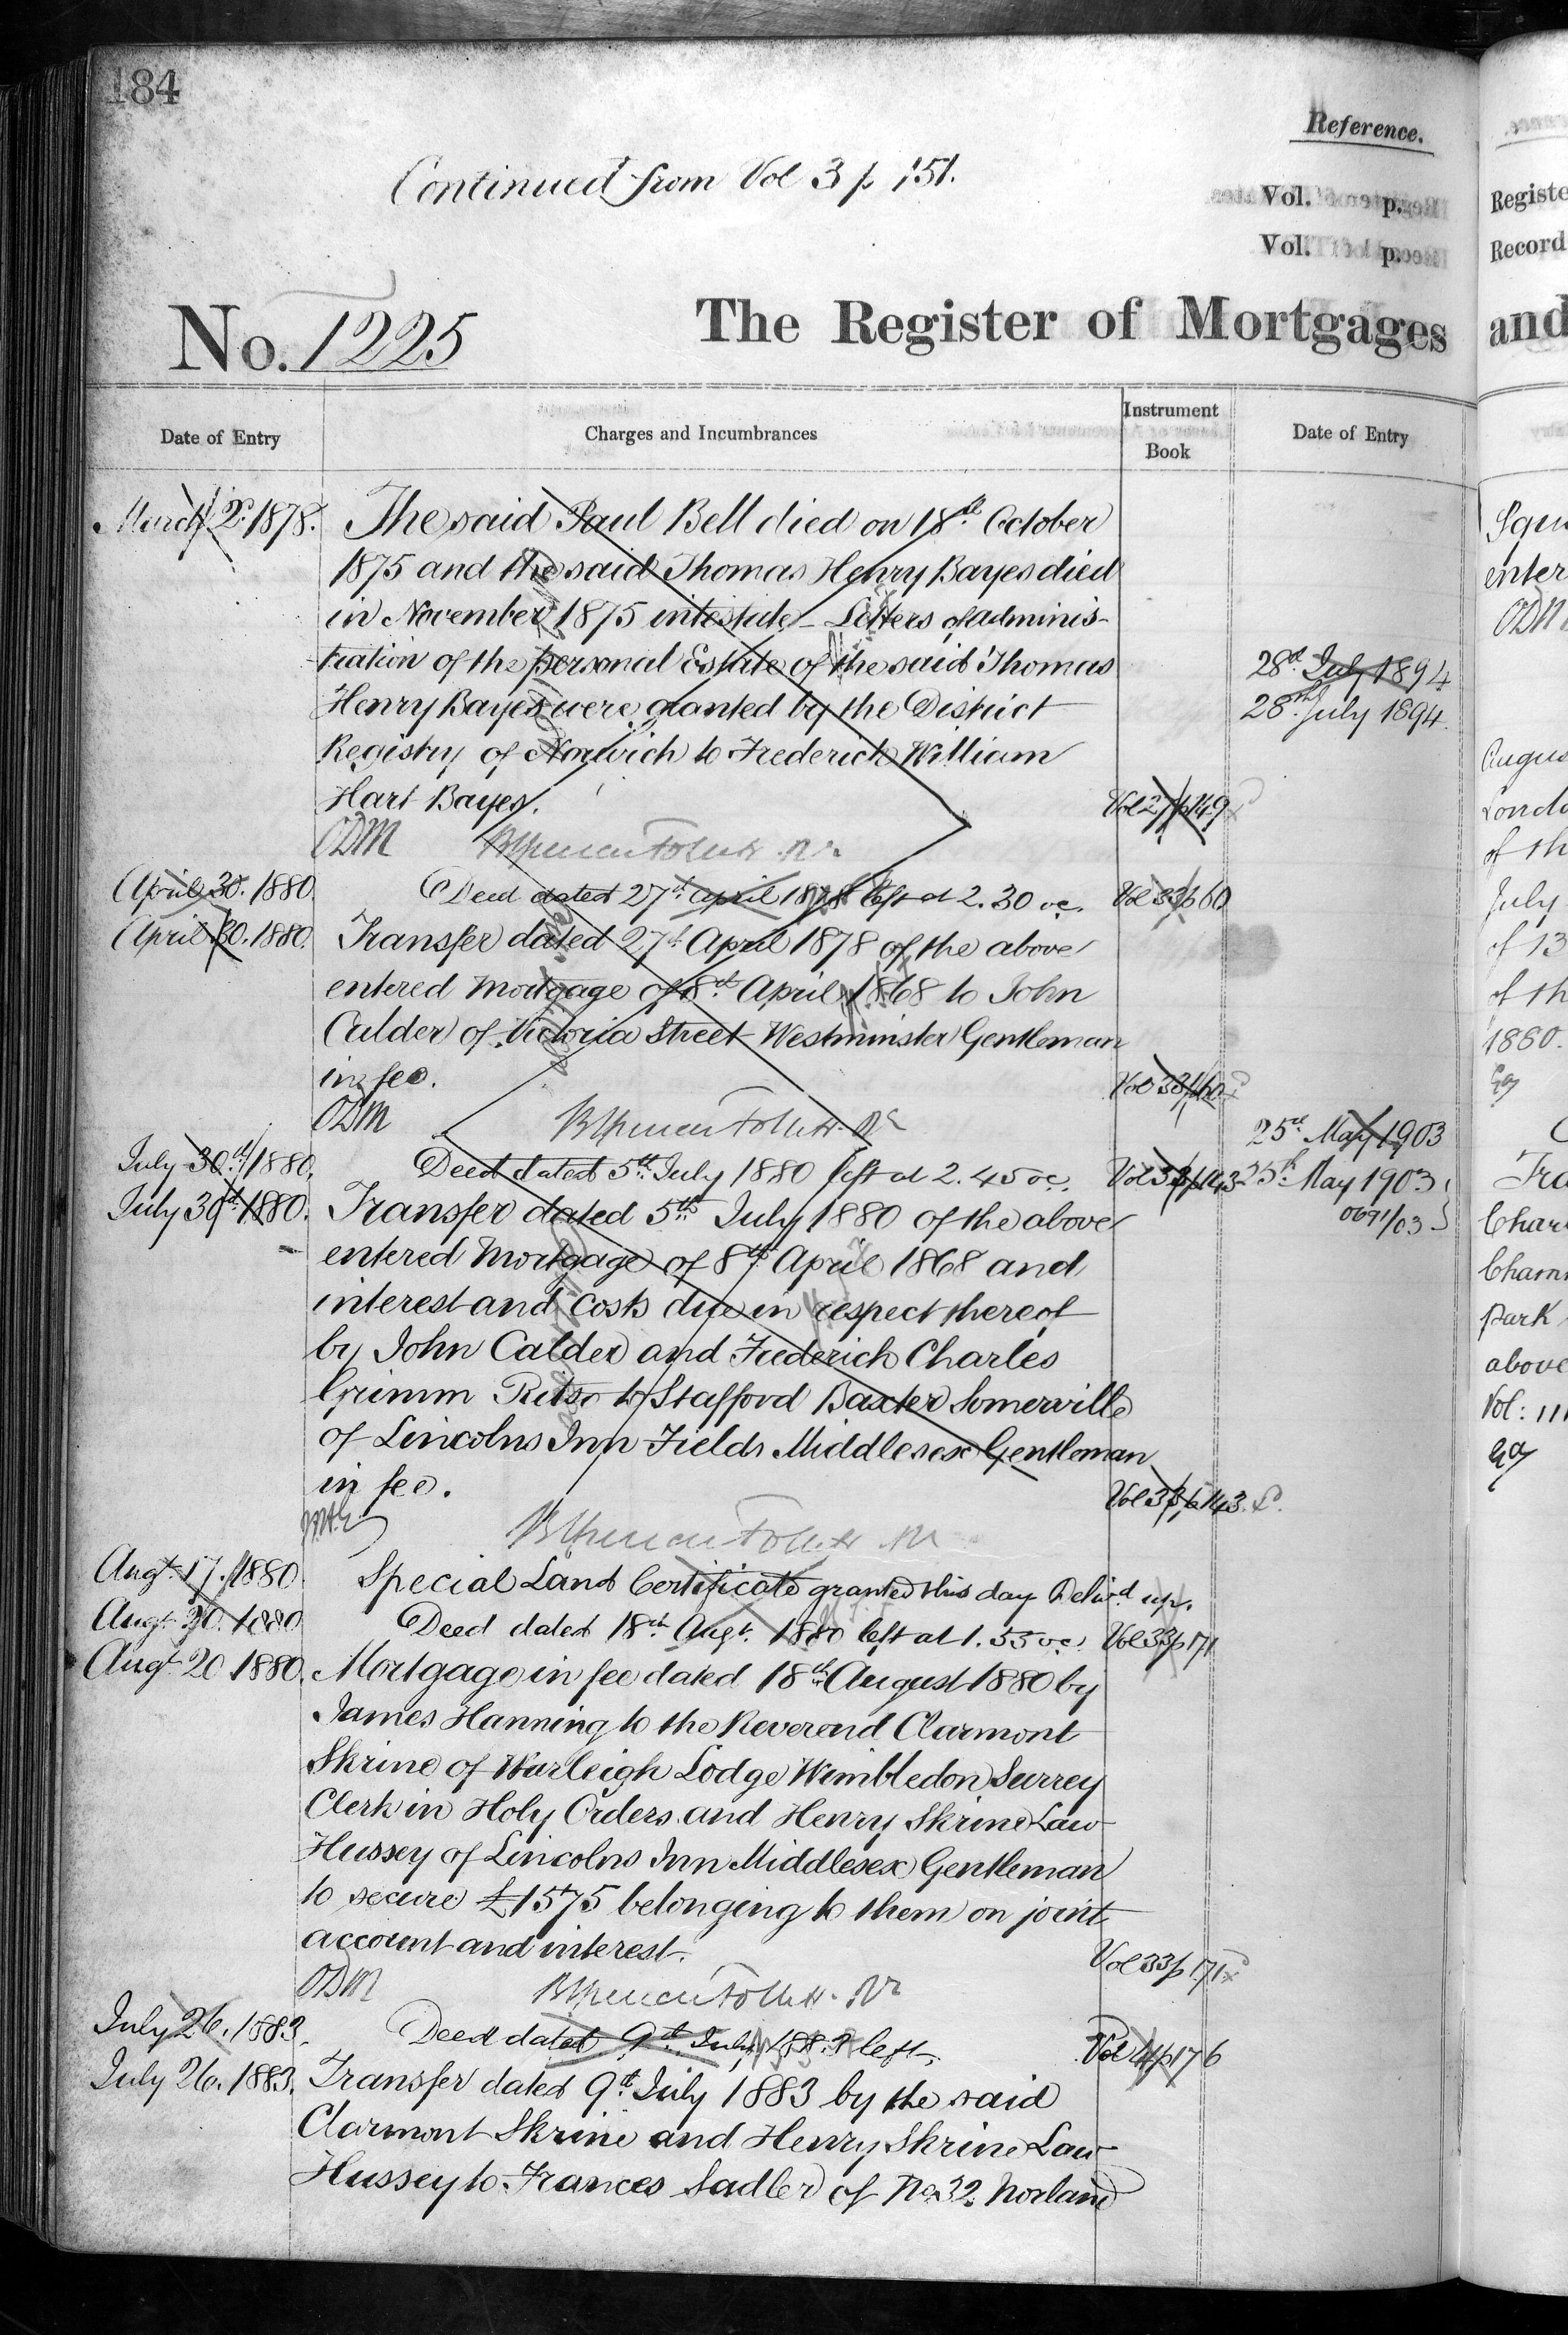 184
Reference.
Continued from Vol 3 p 151.
Vol. p.
Vol. p.
No. 1225
The Register of Mortgages
Date of Entry
Charges and Incumbrances
Instrument Book
Date of Entry
March 2. 1878. The said Paul Bell died on 18th October
1875 and the said Thomas Henry Bayes died
in November 1875 intestate - Letters of adminis-
tration of the personal Estate of the said Thomas
28th July 1894
Henry Bayes were granted by the District
28th July 1894.
Registry of Norwich to Frederick William
Hart Bayes. Vol 27 p 149
ODM
April 30. 1880. Deed dated 27th April 1878 left at 2.30 oc. Vol 33 p 60
April 30. 1880. Transfer dated 27th April 1878 of the above
entered Mortgage of 8th April 1868 to John
Calder of Victoria Street Westminster Gentleman
in fee. Vol 33 p 60
ODM
25th May 1903
July 30th 1880. Deed dated 5th July 1880 left at 2.45 oc. Vol 33 p 143 25th May 1903
July 30th 1880. Transfer dated 5th July 1880 of the above
0691/03
entered Mortgage of 8th April 1868 and
interest and Costs due in respect thereof
by John Calder and Frederick Charles
Grimm Ritso to Stafford Baxter Somerville
of Lincolns Inn Fields Middlesex Gentleman
in fee. Vol 33 p 143.
Augt. 17. 1880. Special Land Certificate granted this day Delivd up.
Augt. 20. 1880 Deed dated 18th Augt. 1880 left at 1.55 oc. Vol 33 p 171
Augt 20 1880. Mortgage in fee dated 18th August 1880 by
James Hanning to the Reverend Clarmont
Skrine of Warleigh Lodge Wimbledon Surrey
Clerk in Holy Orders and Henry Skrine Law
Hussey of Lincolns Inn Middlesex Gentleman
to secure £1575 belonging to them on joint
account and interest. Vol 33 p 171
ODM
July 26. 1883. Deed dated 9th July 1883 left. Vol 41 p 176
July 26. 1883. Transfer dated 9th July 1883 by the said
Clarmont Skrine and Henry Skrine Law
Hussey to Frances Sadler of No 32 Norland
Registe
Record
and
enter
ODM
Augus
Londo
of th
July
of 13
of th
1880.
Tra
Char
Park
above
Vol: 111